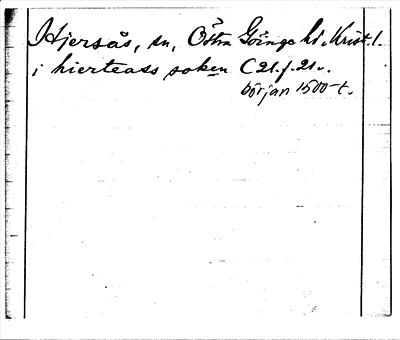 Hjersås, sn, Östra Göinge hd. Krist. l.
i hierteass soken C 21. f. 21v.
början 1500-t.